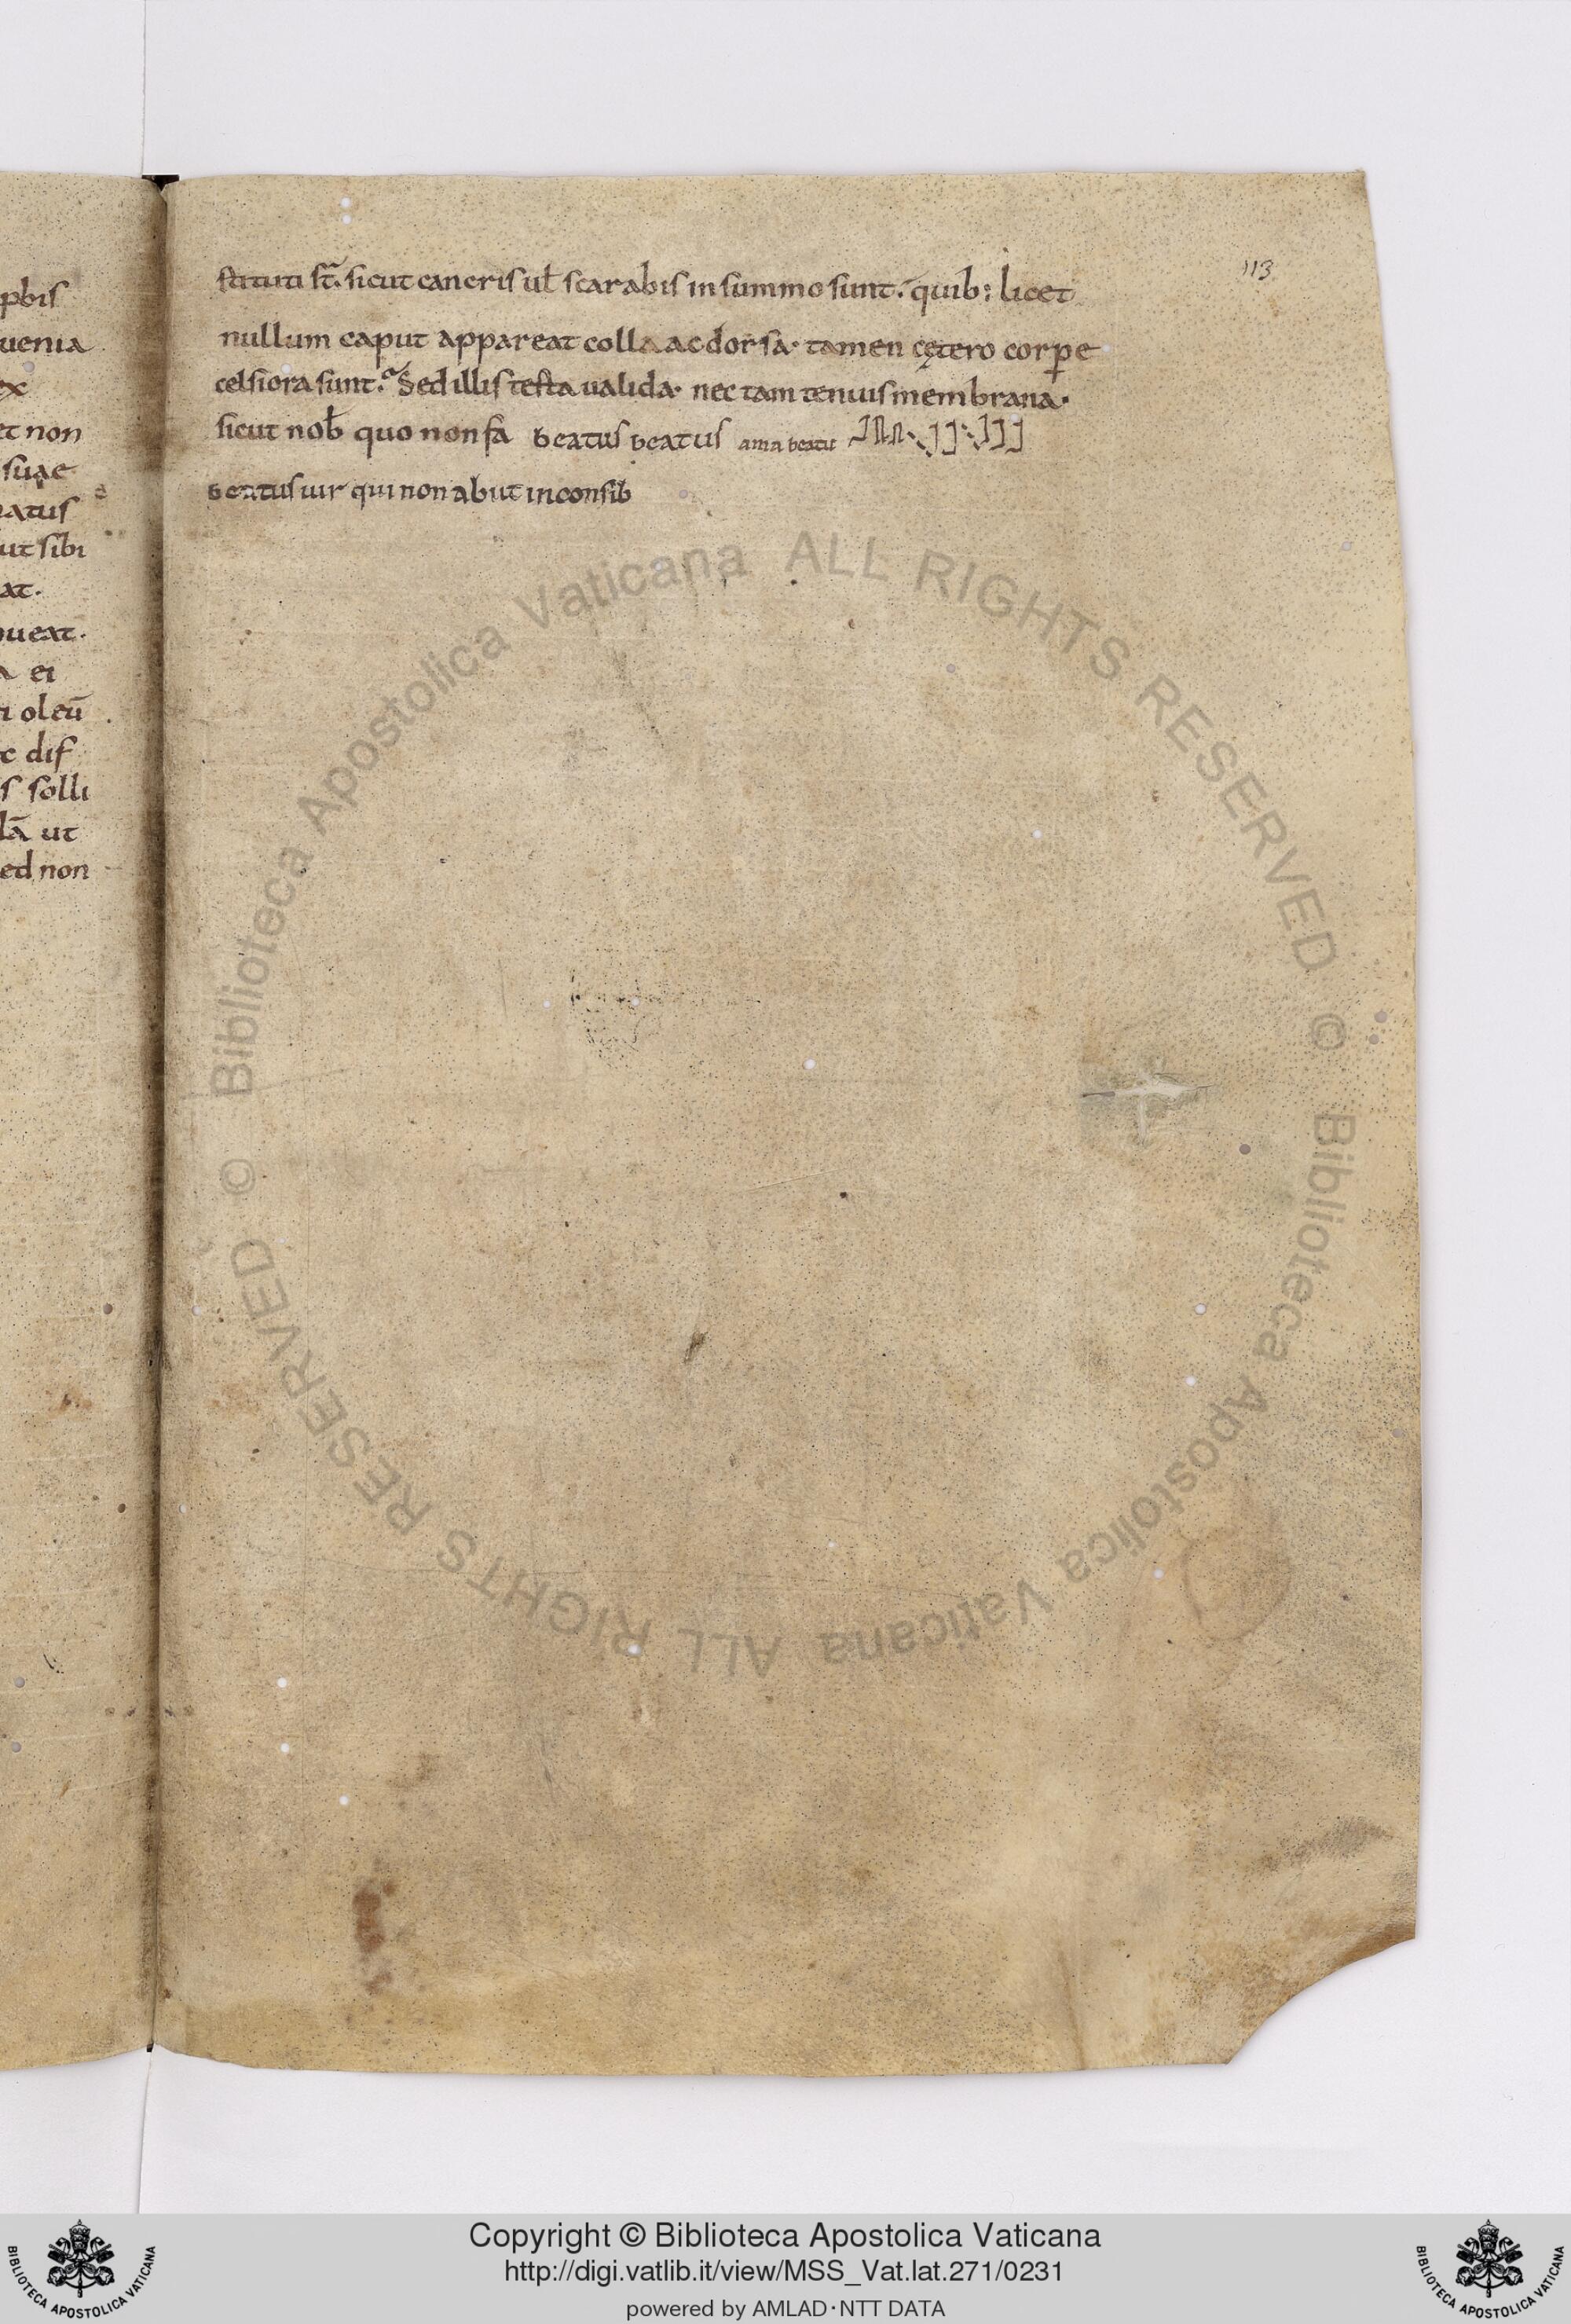 113
stituti st̄. sicut cancris ul̄ scarabis in summo sunt. quib: licet
nullum caput appareat colla ac dorsa· tamen cętero corꝑe
celsiora sunt. Sed illis testa valida· nec tam tenuis membrana·
sicut nob̄ quo non fa beatus beatus ama beatu
beatus uir qui non abut in consib
pbis
uenia
ex
et non
suae
natus
ut sibi
at.
oueat.
a ei
ri oleū
c dif
is solli
lā ut
sed non
© Biblioteca Apostolica Vaticana ALL RIGHTS RESERVED © Biblioteca Apostolica Vaticana ALL RIGHTS RESERVED
Copyright © Biblioteca Apostolica Vaticana
http://digi.vatlib.it/view/MSS_Vat.lat.271/0231
powered by AMLAD·NTT DATA
BIBLIOTECA APOSTOLICA VATICANA
BIBLIOTECA APOSTOLICA VATICANA